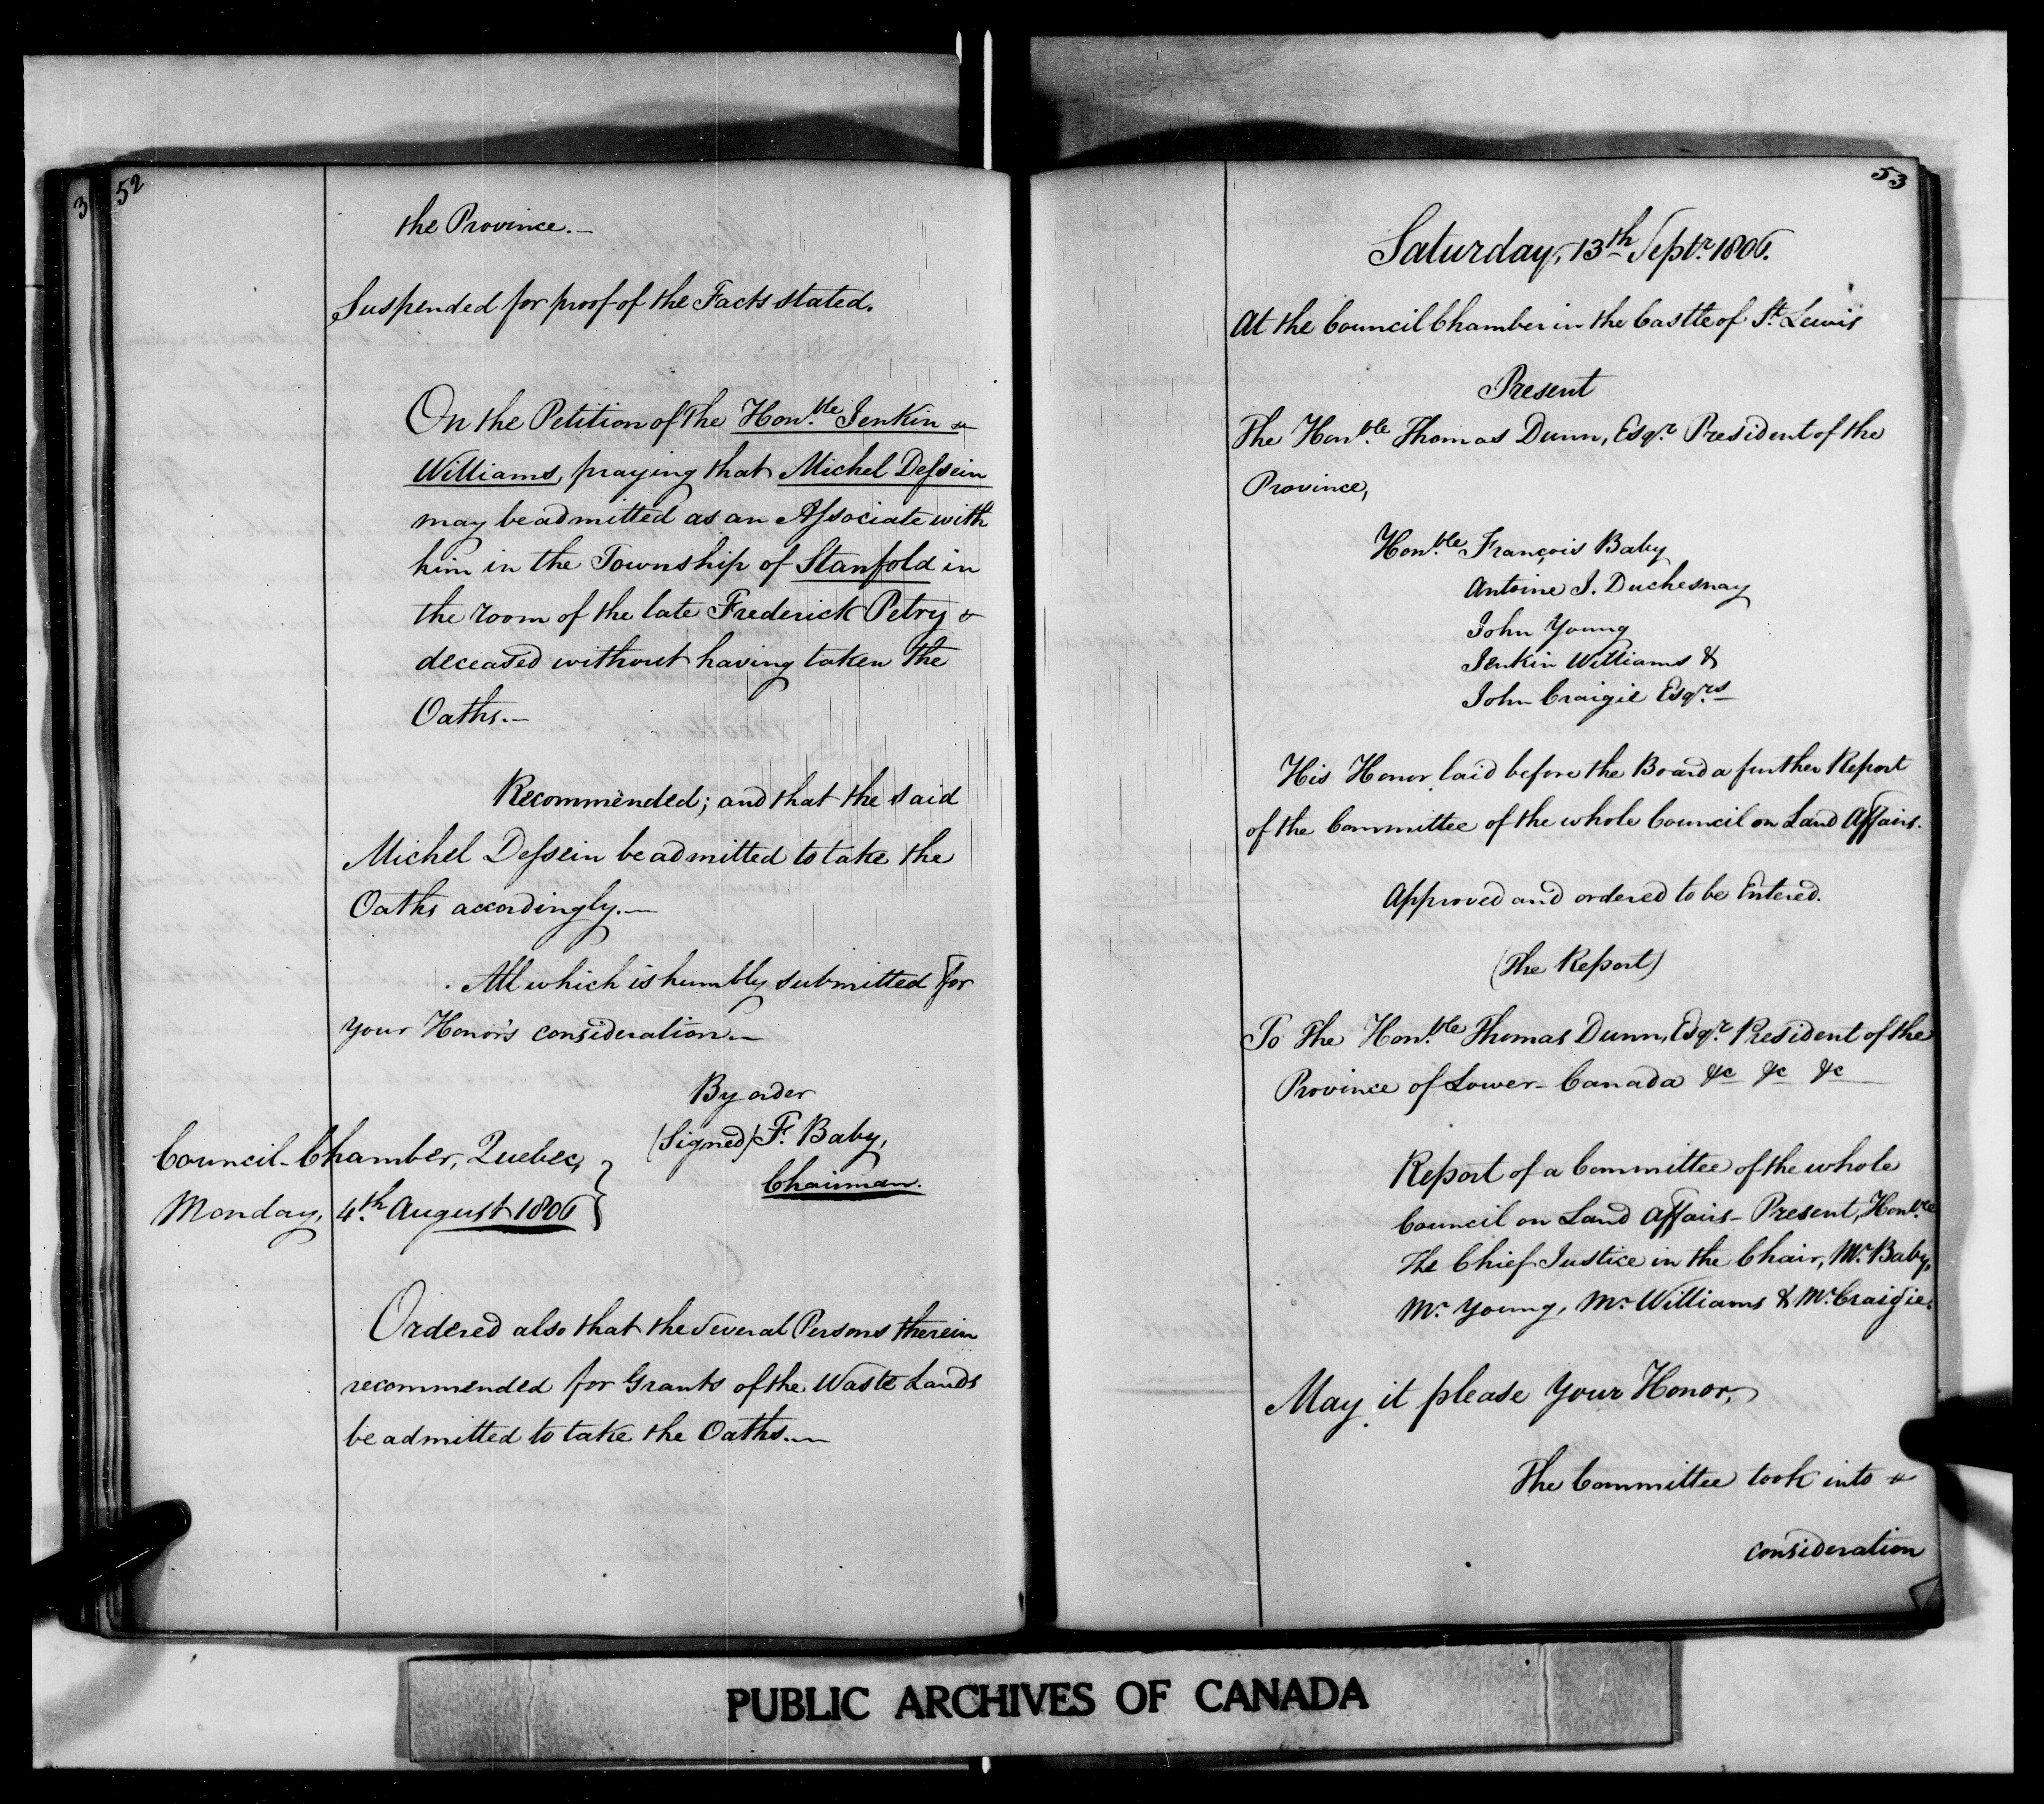 3
52
the Province.—
Suspended for proof of the Facts stated.
On the Petition of the Hon.ble Jenkin
Williams, praying that Michel Dessein
may be admitted as an Associate with
him in the Township of Stanfold in
the room of the late Frederick Petry
deceased without having taken the
Oaths.—
Recommended; and that the said
Michel Dessein be admitted to take the
Oaths accordingly.—
All which is humbly submitted for
your Honor's consideration.—
By order
(Signed) F. Baby,
Chairman.
Council-Chamber, Quebec,
Monday, 4th August 1806
Ordered also that the several Persons therein
recommended for Grants of the Waste Lands
be admitted to take the Oaths.—
53
Saturday, 13th Septr. 1806.
At the Council Chamber in the Castle of St. Lewis
Present
The Hon.ble Thomas Dunn, Esqr. President of the
Province,
Hon.ble François Baby
Antoine J. Duchesnay
John Young
Jenkin Williams &
John Craigie Esqrs
His Honor laid before the Board a further Report
of the Committee of the whole Council on Land Affairs.
Approved and ordered to be Entered.
(The Report)
To The Hon.ble Thomas Dunn, Esqr. President of the
Province of Lower-Canada &c &c &c
Report of a Committee of the whole
Council on Land Affairs— Present, Hon.ble
The Chief Justice in the Chair, Mr. Baby,
Mr. Young, Mr. Williams & Mr. Craigie.
May it please Your Honor,
The Committee took into
consideration
PUBLIC ARCHIVES OF CANADA